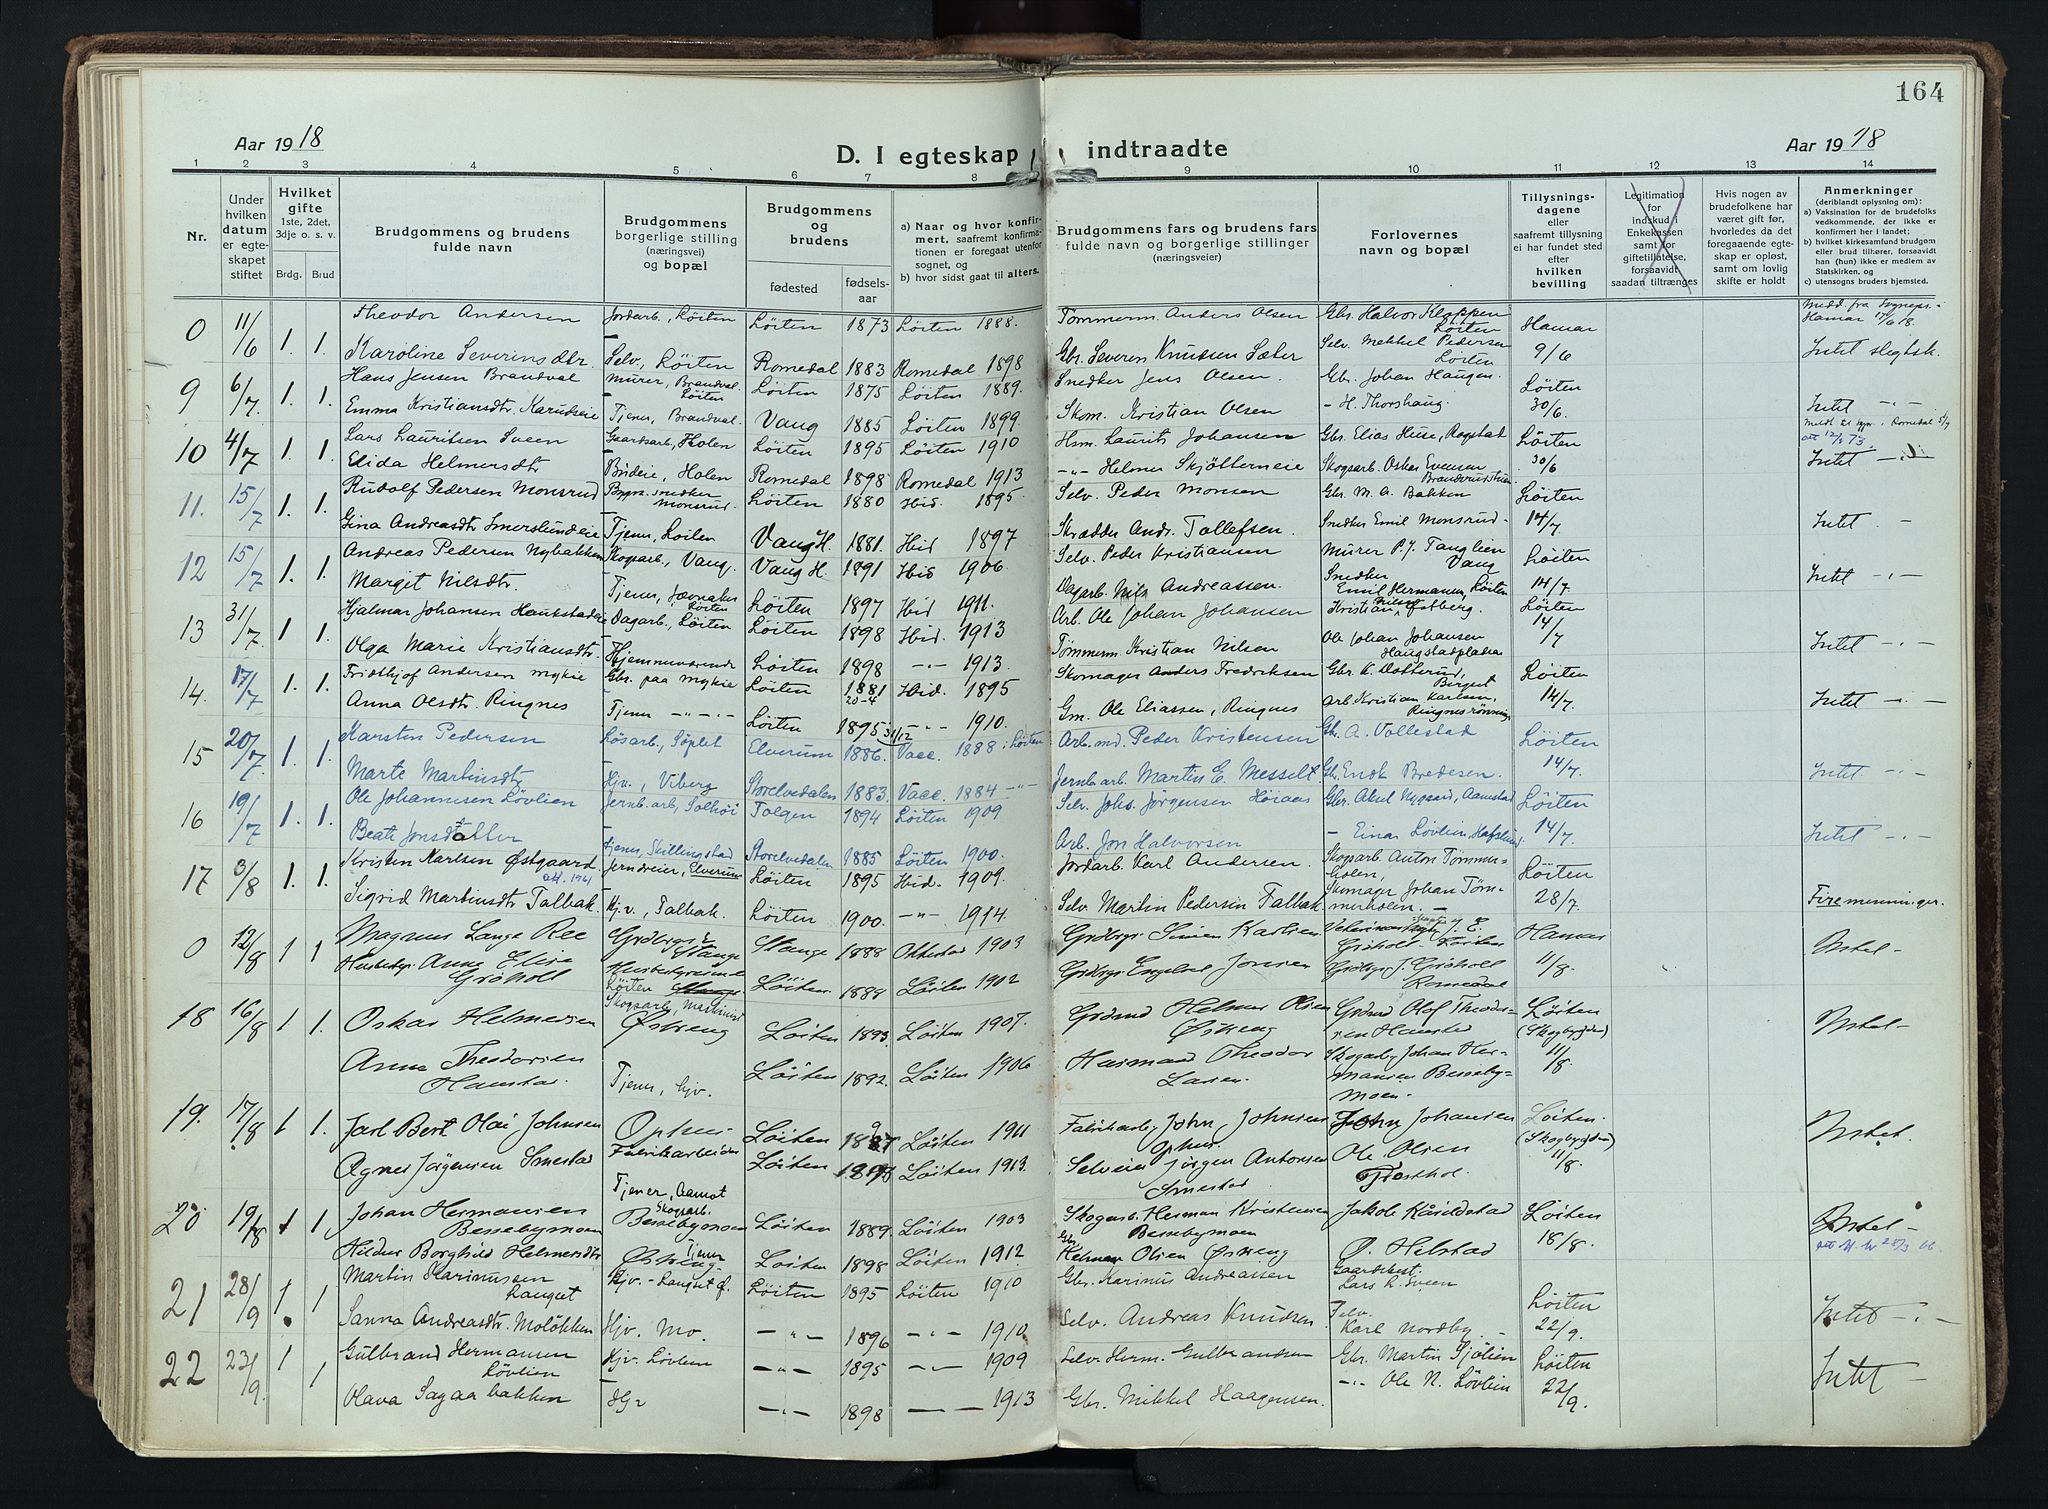 164
Aar 1918
D. I egteskap indtraadte
Aar 1918
1 2 3 4 5 6 7 8 9 10 11 12 13 14
Nr.
Under hvilken datum er egteskapet stiftet
Hvilket gifte 1ste, 2det, 3dje o. s. v.
Brdg. Brud
Brudgommens og brudens fulde navn
Brudgommens borgerlige stilling (næringsvei) og bopæl
Brudgommens og brudens
fødested fødselsaar
a) Naar og hvor konfirmert, saafremt konfirmationen er foregaat utenfor sognet, og
b) hvor sidst gaat til alters.
Brudgommens fars og brudens fars fulde navn og borgerlige stillinger (næringsveier)
Forlovernes navn og bopæl
Tillysningsdagene eller saafremt tillysning ei har fundet sted efter hvilken bevilling
Legitimation for indskud i Enkekassen samt for giftetilladelse, forsaavidt saadan tiltrænges
Hvis nogen av brudefolkene har været gift før, hvorledes da det foregaaende egteskap er opløst, samt om lovlig skifte er holdt
Anmerkninger (deriblandt oplysning om):
a) Vaksination for de brudefolks vedkommende, der ikke er konfirmert her i landet;
b) hvilket kirkesamfund brudgom eller brud tilhører, forsaavidt han (hun) ikke er medlem av Statskirken, og
c) utensogns bruders hjemsted.
0 11/6 1. 1. Theodor Andersen Jordarb., Löiten Löiten 1873 Löiten 1888. Tömmerm. Anders Olsen Gbr. Halvor Kloppen Löiten Hamar 9/6
Karoline Severinsdtr. Selv., Löiten Romedal 1883 Romedal 1898 Gbr. Severin Knudsen Sæter Selv. Mekkel Pedersen Löiten Intet slegtsk.
9 6/7. 1. 1. Hans Jensen Brandval Murer, Brandval Löiten Löiten 1875 Löiten 1889. Snedker Jens Olsen Gbr. Johan Haugen. Löiten 30/6.
Emma Kristiansdtr. Tjener, Brandval. Vang 1885 Löiten 1899 Skom. Kristian Olsen - H. Thorshaug. Intet
10 4/7 1. 1. Lars Lauritsen Sveen Gaardsarb., Holen Löiten 1895 Löiten 1910 Hsm. Laurits Johansen Gbr. Elias Huse, Rogstad Löiten 30/6
Elida Helmersdtr Budeie, Holen Romedal 1898 Romedal 1913 Helmer Skjötterneie Skogsarb. Oskar Evensen Intet
11. 15/7 1. 1. Rudolf Pedersen Monsrud Bygn. snedker Monsrud. Löiten 1880 Ibid. 1895. Selv. Peder Monsen Gbr. M. A. Bakken Löiten 14/7
Gina Andreasdtr Smerslundeie Tjener, Löiten Vang H. 1881. Ibid 1897 Skrædder Andr. Tollefsen. Snedker Emil Monsrud Intet -
12 15/7 1. 1. Andreas Pedersen Nybakken Skogsarb., Vang. Vang H. 1891 Ibid 1906 Selv. Peder Kristiansen Murer P. J. Tanglien Vang Löiten 14/7.
Margit Nilsdtr. Tjener, Löiten Löiten 1897 Ibid 1911. Dagarb. Nils Andreassen. Snedker Emil Hermansen, Löiten Intet - " -
13 31/7. 1. 1. Hjalmar Johansen Dagarb., Löiten Löiten 1898 Ibid. 1913 Arb. Ole Johan Johansen Kristian Nilsen Östberg. Löiten 14/7
Olga Marie Kristiansdtr. Hjemmeværende Löiten 1898 - " - 1913. Tömmerm Kristian Nilsen Ole Johan Johansen Haugstadpladsen Intet - " -
14. 17/7 1. 1. Fridthjof Andersen Mykie Gbr. paa Mykie Löiten 1881 20-4 Ibid. 1895 Skomager Anders Fredriksen Gbr. K. Dotterud, Berget Löiten 14/7.
Anna Olsdtr. Ringnes Tjener - " - Löiten 1895 - " - 1910. Gm. Ole Eliassen, Ringnes Arb. Kristian Karlsen, Ringnesrönning Intet
15 20/7. 1. 1. Karsten Pedersen Lösarb., Elverum 1886. Vacc. 31/12 1888 i Löiten Arb.md. Peder Kristensen Gbr. A. Vollestad Löiten 14/7.
Marte Martinsdtr Hjv., Viberg Storelvedalen 1883. Vacc. 1884 - " - Jernb.arb. Martin E. Messelt Gbr. Endr. Bredesen. Intet. - " -
16 19/7 1. 1. Ole Johannesen Lövlien Jernb.arb., Tolgen 1894 Löiten 1909 Selv. Johs. Jörgensen Höiaas Gbr. Aksel Nygaard, Aamstad Löiten 14/7.
Beate Jonsdatter Tjener, Skillingstad Storelvedalen 1885 Löiten 1900. Arb. Jon Halvorsen - Einar Lövlien, Intet - " -
17 3/8 1. 1. Kristen Karlsen Östgaard Elverum Löiten 1895 Ibid. 1909. Jordarb. Karl Andersen. Skogsarb. Anton Tömmerholen, Löiten 28/7.
Sigrid Martinsdtr Talbak. Hjv., Talbak. Löiten 1900. - " - 1914 Selv. Martin Pedersen Talbak Skomager Johan Tömmerholen. - Firemenninger.
0 12/8 1 1 Magnus Lange Ree Grdbrgr. Stange Stange 1888 Ottestad 1903 Grdbrgr. Simen Karlsen Gröholt Hamar 11/8. Intet-
Husbestyr. Anne Elise Gröholt Husbestyrerinde Löiten Löiten. 1888 Löiten 1902 Grdbrgr Engebret Jonsen Grdbrgr J. Gröholt Romedal
18 16/8 1 1. Oskar Helmersen Skogsarb., Östreng Löiten 1893. Löiten 1907. Grdmd Helmer Olsen Östreng Grdmd Olaf Theodorsen Hamstad Löiten (Skogbygden) 11/8. Intet-
Anna Theodorsen Hamstad. Tjener, hjv. Löiten 1892. Löiten 1906 Husmand Theodor Larsen. Skogsarb Johan Hermansen Bessebymoen.
19. 17/8 1 1. Jarl Bert Olai Johnsen Ophus Fabrikarbeider Löiten Löiten 1911 Fabrikarb John Johnsen Ophus John Johansen Löiten. (Skogbygden) 11/8. Intet.
Agnes Jörgensen Smestad Tjener, Aamot Löiten 1898 Löiten 1913. Selveier Jörgen Antonsen Smestad Ole Olsen
20 19/8 1 1 Johan Hermansen Bessebymoen Skogsarb. Bessebymoen Löiten 1889. Löiten 1903 Skogarb. Herman Kristensen Bessebymoen Jakob Kaarildstad Löiten 18/8. Intet-
Hildur Borghild Helmersdtr Östreng Tjener Löiten 1898 Löiten 1912 Gbr. Helmer Olsen Östreng O. Helstad
21 28/9 1 1 Martin Karinussen Langset Hjv. - Langset Löiten 1895 Löiten 1910 Gbr. Karinus Andreassen Gaardbest. Lars L. Sveen Löiten 22/9.
Sanna Andreasdtr. Molökken Hjv. Mo. - " - 1896 - " - 1910 Selv. Andreas Knudsen. Selv. Karl Nordby Intet - " -
22 23/9. 1 1 Gulbrand Hermansen Lövlien Hjv. Lövlien - " - 1895 - " - 1909 Selv. Herm. Gulbrandsen Gbr. Martin Sjölien Löiten 22/9.
Olava Sagaabakken - " - 1898 1913 Gbr. Mikkel Haagensen. - " - Ole N. Lövlien Intet -